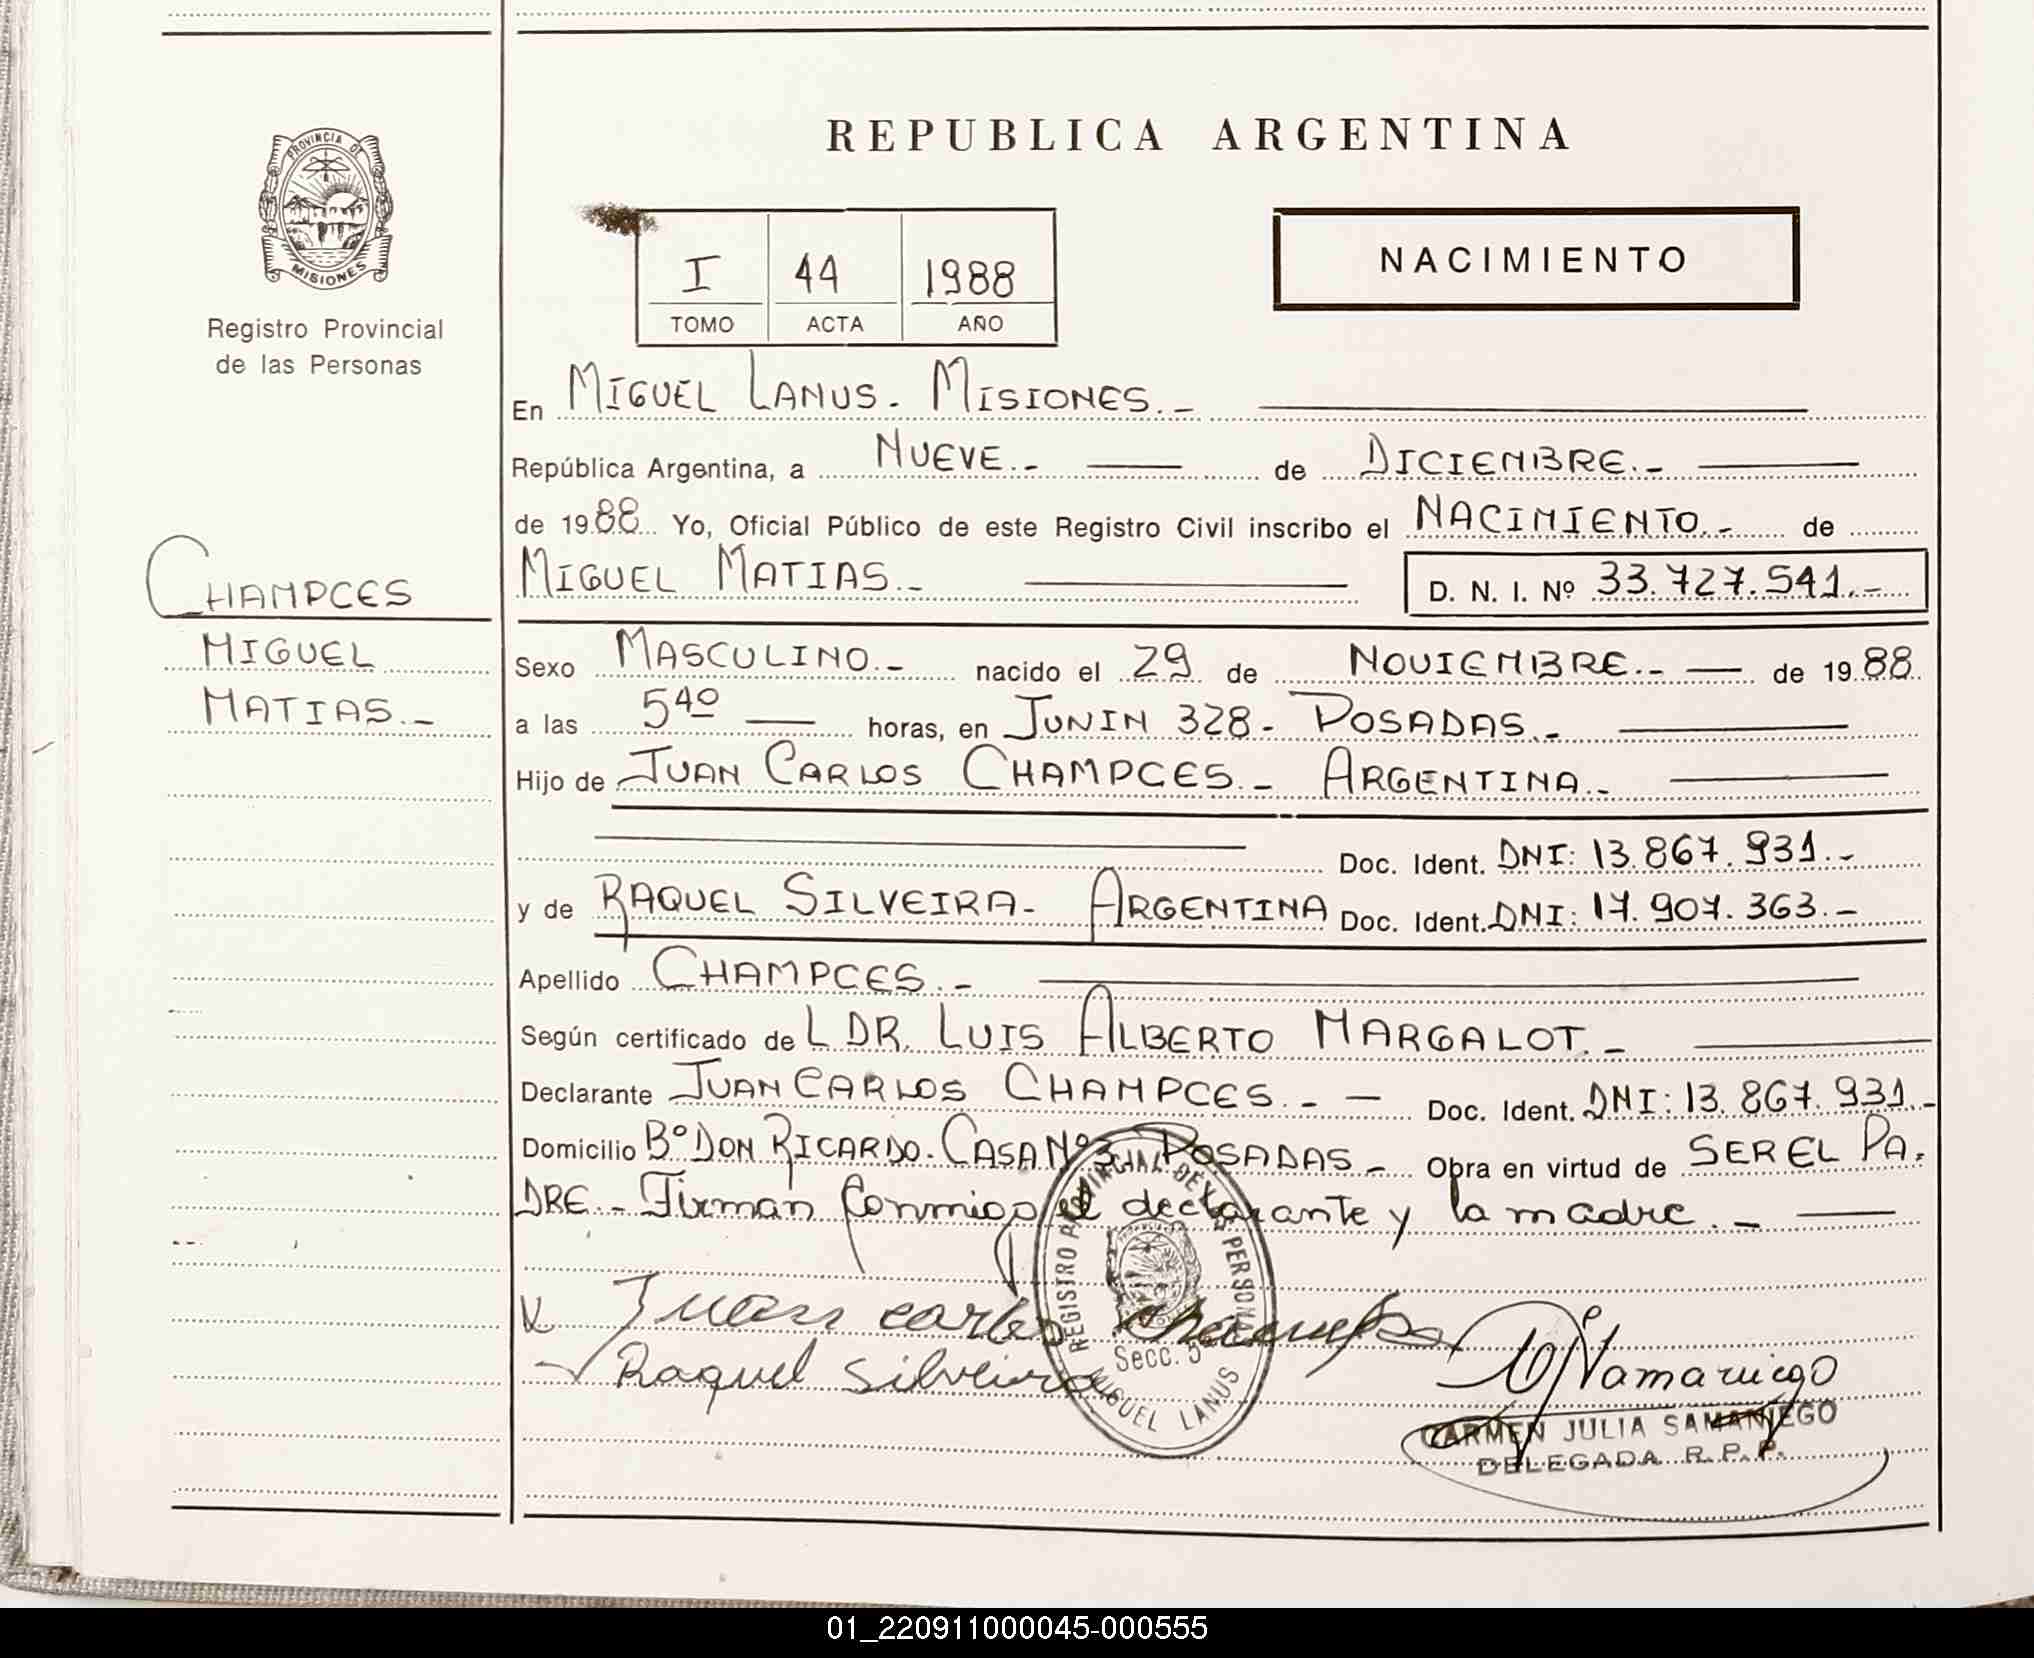 REPUBLICA ARGENTINA
PROVINCIA DE
MISIONES
Registro Provincial
de las Personas
I 44 1988
TOMO ACTA AÑO
NACIMIENTO
En MIGUEL LANUS. MISIONES.-
República Argentina, a NUEVE.- de DICIEMBRE.-
de 1988 Yo, Oficial Público de este Registro Civil inscribo el NACIMIENTO.- de
MIGUEL MATIAS.- D. N. I. Nº 33.727.541.-
CHAMPCES
MIGUEL
MATIAS.-
Sexo MASCULINO.- nacido el 29 de NOVIEMBRE.- de 1988
a las 5 40 horas, en JUNIN 328- POSADAS.-
Hijo de JUAN CARLOS CHAMPCES.- ARGENTINA.-
Doc. Ident. DNI: 13.867.931.-
y de RAQUEL SILVEIRA- ARGENTINA Doc. Ident. DNI: 17.907.363.-
Apellido CHAMPCES.-
Según certificado de L DR. LUIS ALBERTO MARGALOT.-
Declarante JUAN CARLOS CHAMPCES.- Doc. Ident. DNI: 13.867.931.-
Domicilio Bº DON RICARDO. CASA Nº 3 POSADAS- Obra en virtud de SER EL PA-
DRE.- Firman conmigo el declarante y la madre.-
Juan carlos
Raquel Silveira
REGISTRO PROVINCIAL DE LAS PERSONAS
Secc. 5
MIGUEL LANUS
Samaniego
CARMEN JULIA SAMANIEGO
DELEGADA R. P. P.
01_220911000045-000555